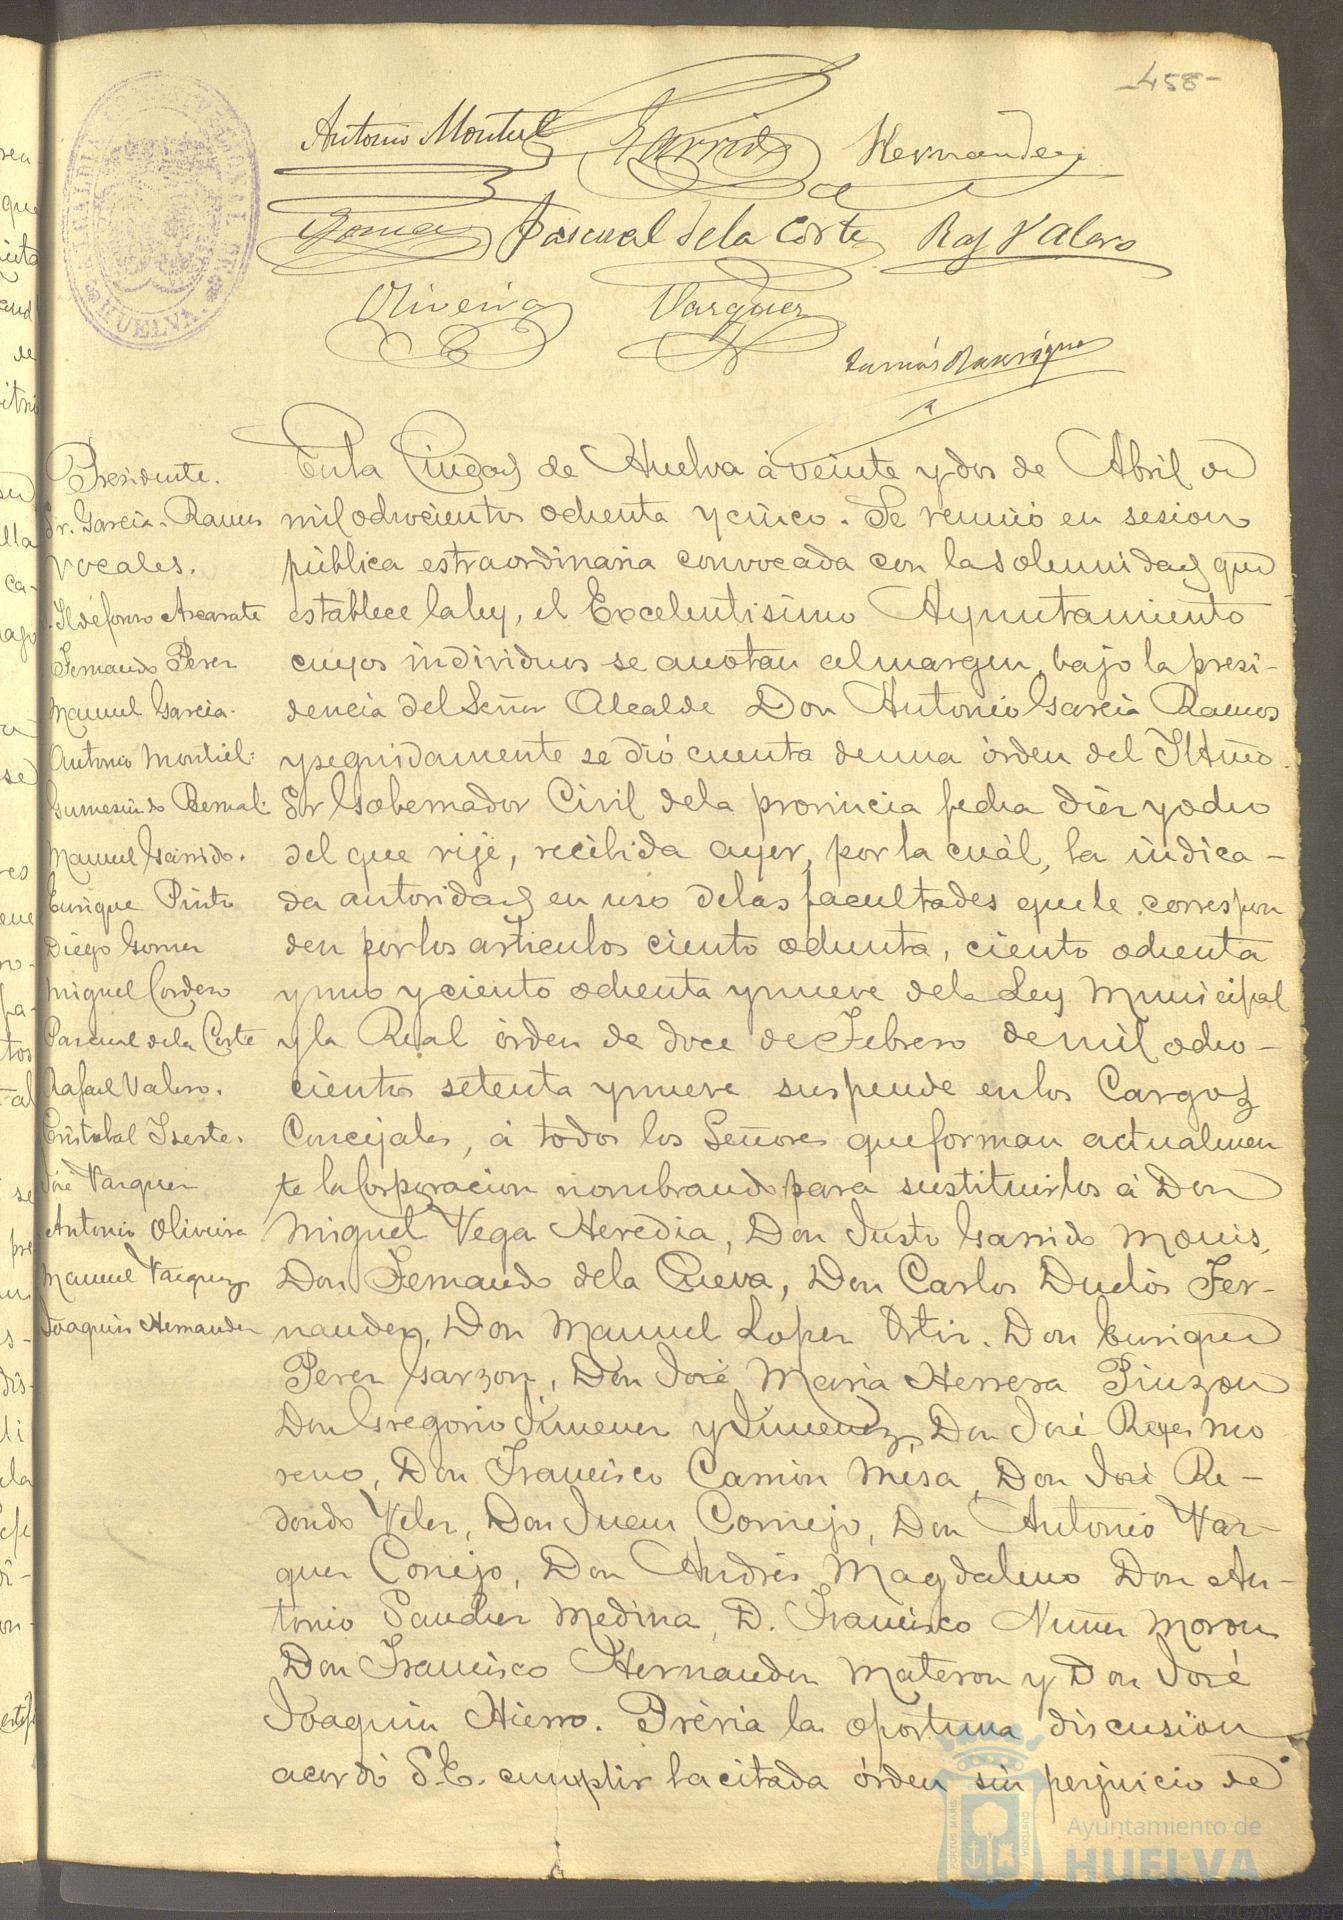 -458-
ALCALDIA CONSTITUCIONAL DE HUELVA
Antonio Montiel Garrido Hernandez
Gomez Pascual de la Corte Raf Valero
Oliveira Vazquez
Tomás Manrique
Presidente.
Sr. Garcia-Ramos
Vocales.
Ildefonso Azcarate
Fernando Perez
Manuel Garcia.
Antonio Montiel.
Gumesindo Bernal.
Manuel Garrido.
Enrique Pinto
Diego Gomez
Miguel Cordero
Pascual de la Corte
Rafael Valero.
Cristobal Iserte.
José Vazquez
Antonio Oliveira
Manuel Vazquez
Joaquin Hernandez
En la Ciudad de Huelva á veinte y dos de Abril de
mil ochocientos ochenta y cinco. Se reunió en sesion
pública estraordinaria convocada con la solemnidad que
establece la ley, el Excelentisimo Ayuntamiento
cuyos individuos se anotan al margen, bajo la presi-
dencia del Señor Alcalde Don Antonio Garcia Ramos
y seguidamente se dió cuenta de una órden del Iltmo
Sr Gobernador Civil de la provincia fecha diez y ocho
del que rije, recibida ayer, por la cuál, la indica-
da autoridad en uso de las facultades que le correspon
den por los articulos ciento ochenta, ciento ochenta
y uno y ciento ochenta y nueve de la Ley Municipal
y la Real órden de doce de Febrero de mil ocho-
cientos setenta y nueve suspende en los Cargos
Concejales, á todos los Señores que forman actualmen
te la Corporacion nombrando para sustituirlos á Don
Miguel Vega Heredia, Don Justo Garrido Mouis,
Don Fernando de la Cueva, Don Carlos Duclós Fer-
nandez, Don Manuel Lopez Ortiz. Don Enrique
Perez Garzon, Don José Maria Herrera Pinzon
Don Gregorio Jimenez y Jimenez, Don José Reyes Mo
reno, Don Francisco Camin Misa, Don José Re-
dondo Velez, Don Juan Cornejo, Don Antonio Vaz-
quez Conejo, Don Andrés Magdaleno Don An-
tonio Sanchez Medina, D. Francisco Nuñez Moron
Don Francisco Hernandez Materon y Don José
Joaquin Hierro. Prévia la oportuna discusion
acordó S.E. cumplir la citada órden sin perjuicio de
PORTUS MARIS CUSTODIA
Ayuntamiento de
HUELVA